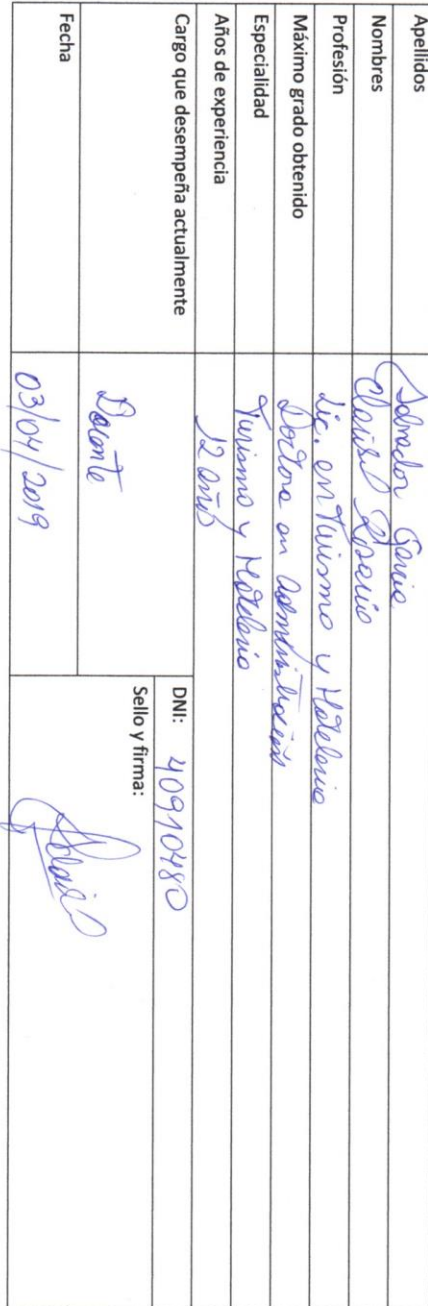 Apellidos Salvador García
Nombres Clarisol Rosario
Profesión Lic. en Turismo y Hotelería
Máximo grado obtenido Doctora en Administración
Especialidad Turismo y Hotelería
Años de experiencia 12 años
Cargo que desempeña actualmente Docente
DNI: 40910480
Sello y firma:
Fecha 03/04/2019